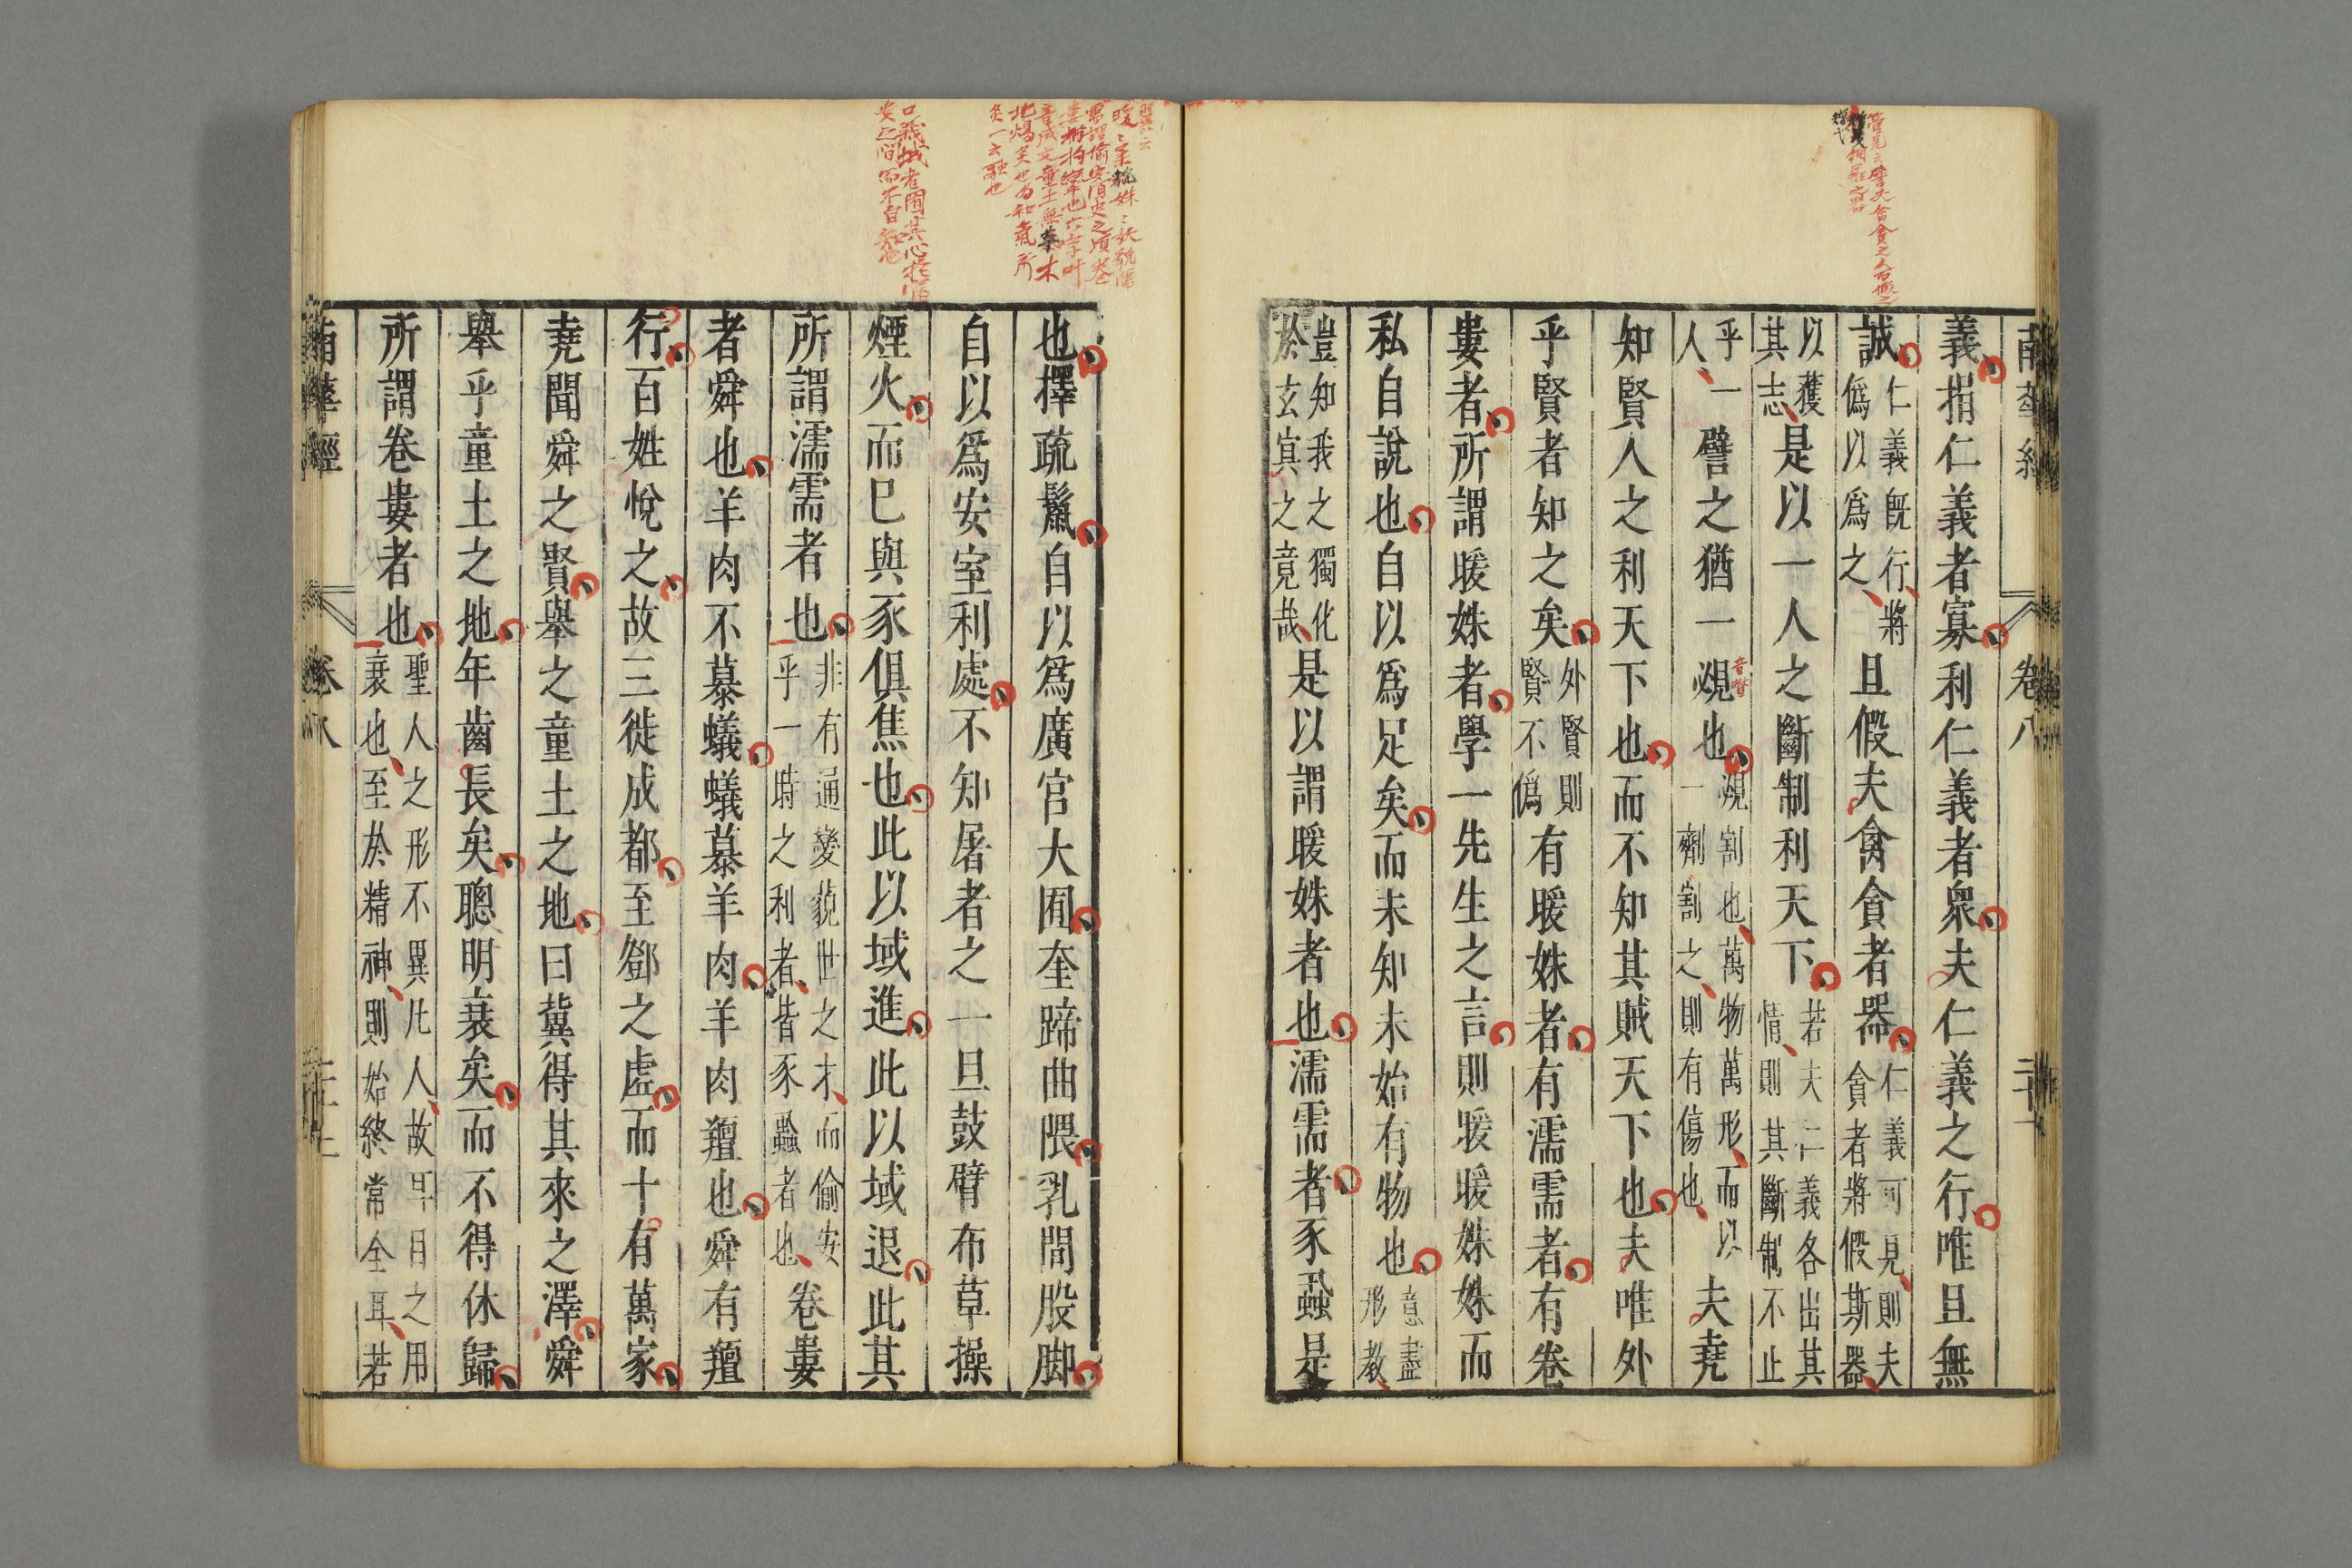 南華經 卷八
義捐仁義者寡利仁義者衆夫仁義之行唯且無
誠仁義既行將僞以爲之且假夫禽貪者器仁義可見則夫貪者將假斯器
以獲其志是以一人之斷制利天下若夫仁義各出其情則其斷制不止
乎一人譬之猶一覕也覕割也萬物萬形而以一劑割之則有傷也夫堯
音瞥
知賢人之利天下也而不知其賊天下也夫唯外
乎賢者知之矣外賢則賢不僞有暖姝者有濡需者有卷
婁者所謂暖姝者學一先生之言則暖暖姝姝而
私自說也自以爲足矣而未知未始有物也意盡形教
豈知我之獨化於玄冥之竟哉是以謂暖姝者也濡需者豕蝨是
暖〻柔貌姝〻妖貌濡
需謂偷安須臾之頃卷
婁猶拘攣也六字叶
音成文童土無草木
地煬炙也為和氣所
炙一云融也
口義域者囿其心於
安之間而不自知也
也擇疏鬣自以爲廣宮大囿奎蹄曲隈乳間股脚
自以爲安室利處不知屠者之一旦鼓臂布草操
煙火而已與豕俱焦也此以域進此以域退此其
所謂濡需者也非有通變藐世之才而偷安乎一時之利者皆豕蝨者也卷婁
者舜也羊肉不慕蟻蟻慕羊肉羊肉羶也舜有羶
行百姓悅之故三徙成都至鄧之虛而十有萬家
堯聞舜之賢舉之童土之地曰冀得其來之澤舜
舉乎童土之地年齒長矣聰明衰矣而不得休歸
所謂卷婁者也聖人之形不異凡人故耳目之用衰也至於精神則始終常全耳若
南華經 卷八